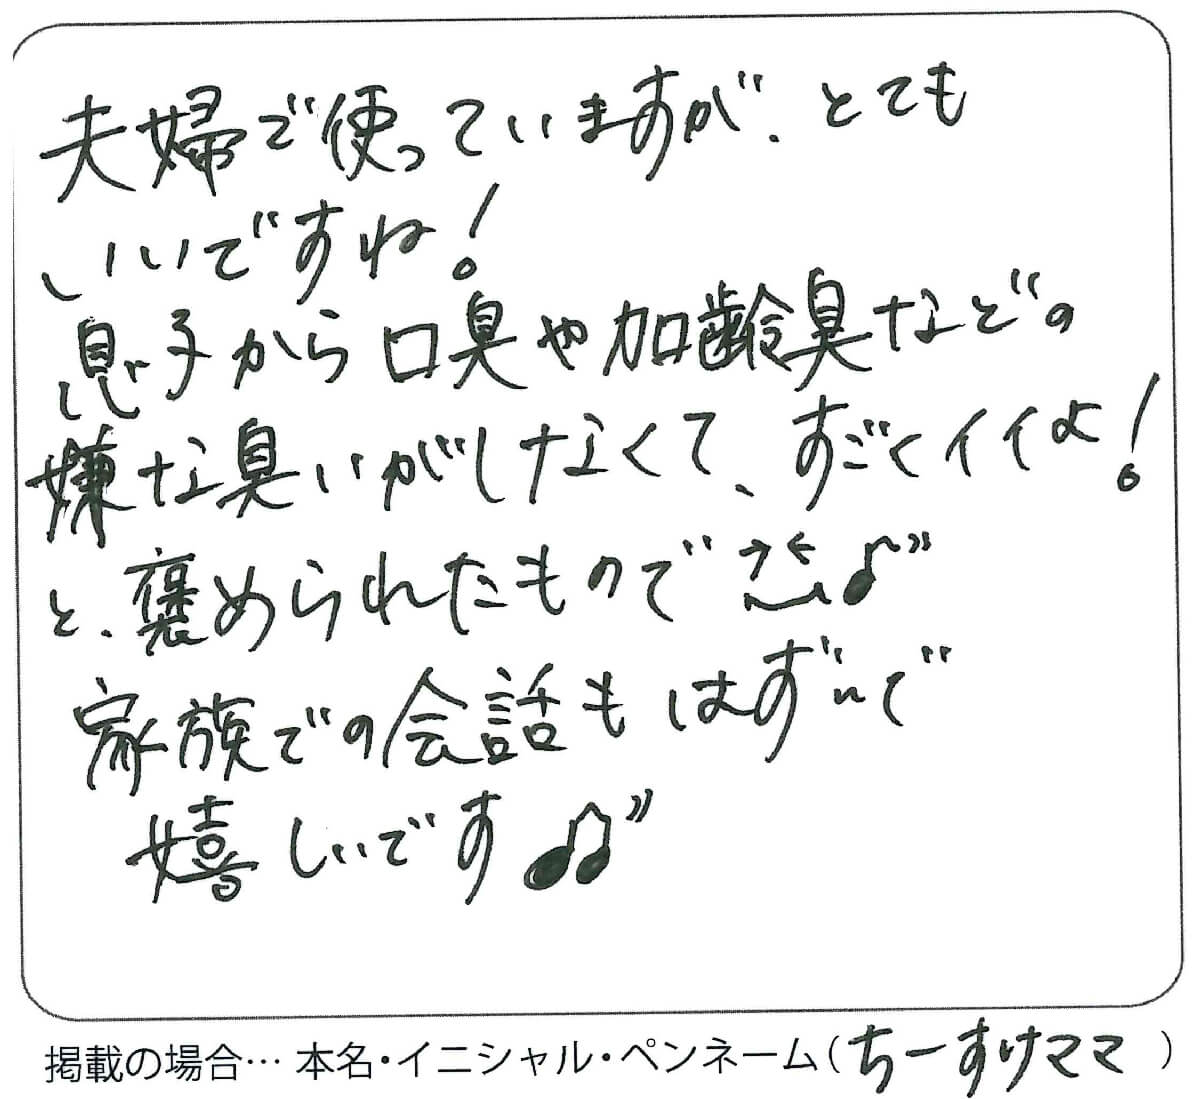 夫婦で使っていますが、とても
いいですね！
息子から口臭や加齢臭などの
嫌な臭いがしなくて、すごくイイよ！
と、褒められたもので♪
家族での会話もはずんで
嬉しいです♫
掲載の場合… 本名・イニシャル・ペンネーム（ちーすけママ）